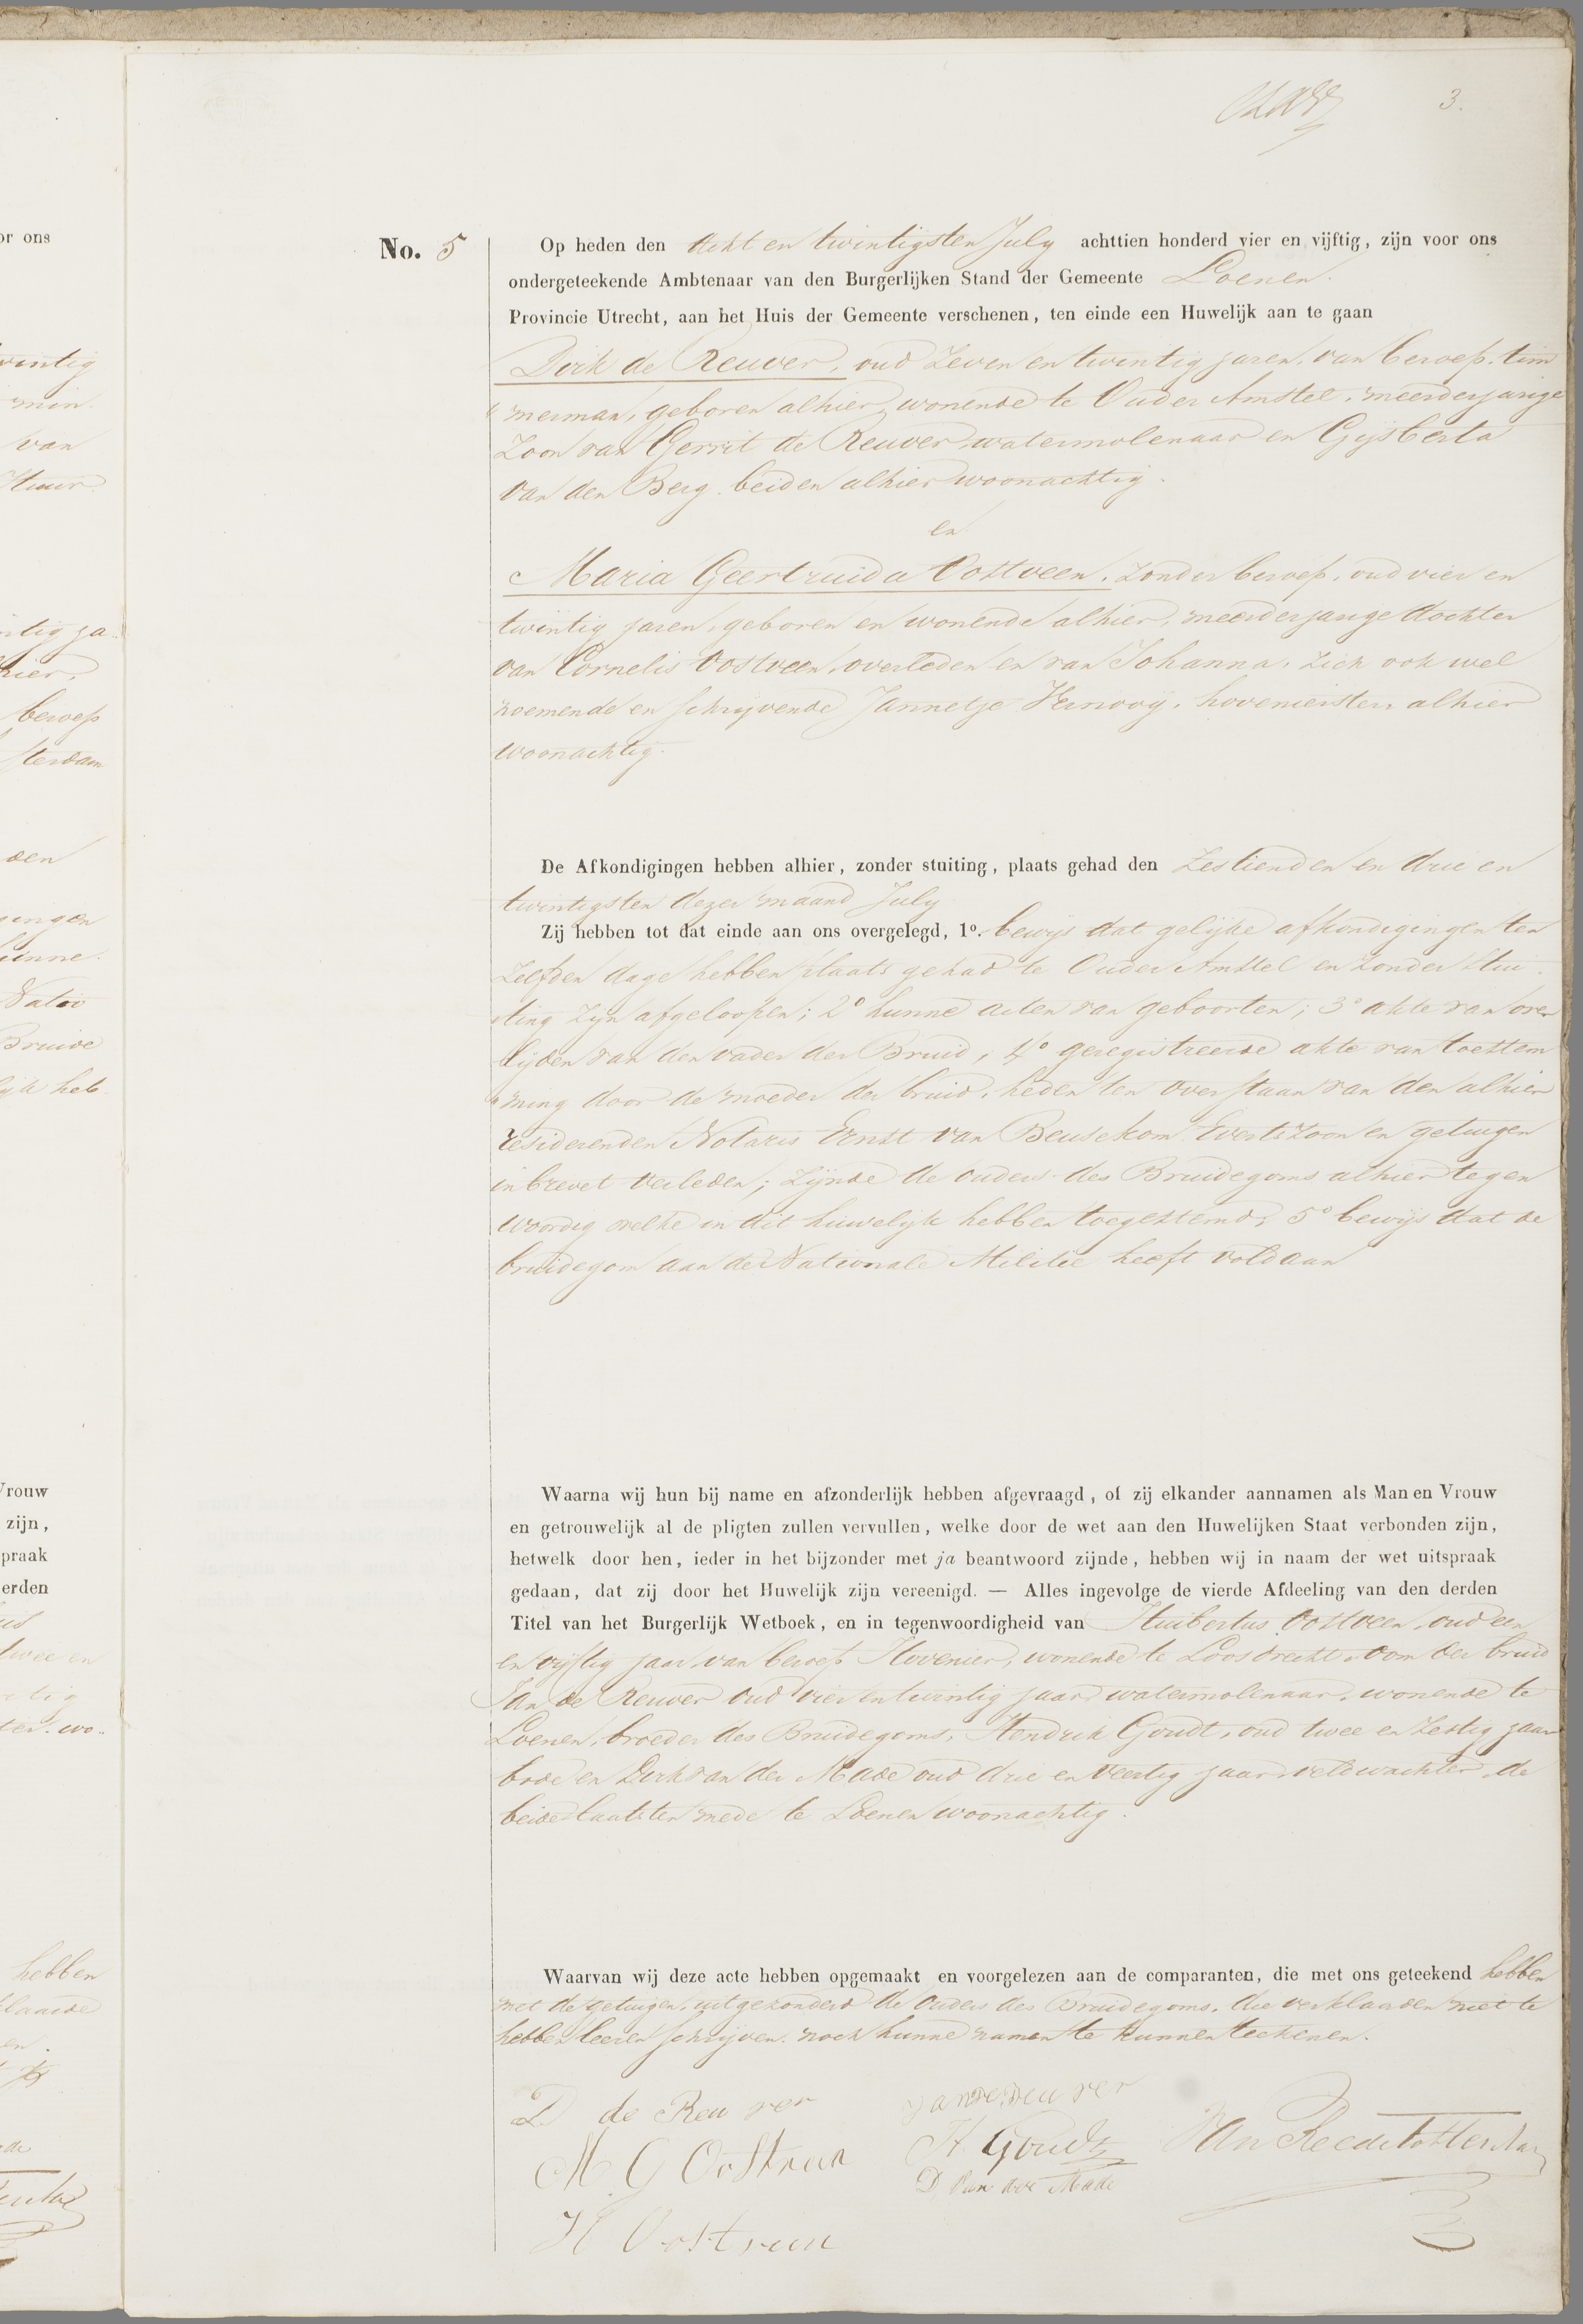 3.
No. 5
Op heden den Acht en twintigsten July achttien honderd vier en vijftig, zijn voor ons
ondergeteekende Ambtenaar van den Burgerlijken Stand der Gemeente Loenen.
Provincie Utrecht, aan het Huis der Gemeente verschenen, ten einde een Huwelijk aan te gaan
Dirk de Reuver, oud Zeven en twintig jaren, van beroep tim
merman, geboren alhier, wonende te Ouder Amstel, meerderjarige
Zoon van Gerrit de Reuver, watermolenaar en Gijsberta
van den Berg beiden alhier woonachtig.
en
Maria Geertruida Oostveen, zonder beroep, oud vier en
twintig jaren, geboren en wonende alhier, meerderjarige dochter
van Cornelis Oostveen, overleden en van Johanna, zich ook wel
noemende en schrijvende Jannetje Vernooy, hovenierster alhier
woonachtig.
De Afkondigingen hebben alhier, zonder stuiting, plaats gehad den Zestienden en drie en
twintigsten dezer maand July
Zij hebben tot dat einde aan ons overgelegd, 1o. bewijs dat gelijke afkondigingen ten
Zelfden dage hebben plaats gehad te Ouder Amstel en zonder stui
ting zijn afgeloopen; 2o hunne acten van geboorten; 3o akte van over
lijden van den vader der Bruid, 4o geregistreerde akte van toestem
ming door de moeder der bruid, heden ten overstaan van den alhier
residerenden Notaris Ernst van Beusekom Evertszoon en getuigen
in brevet verleden; zijnde de ouders des Bruidegoms alhier tegen
woordig welke in dit huwelijk hebben toegestemd; 5o bewijs dat de
bruidegom aan de Nationale Militie heeft voldaan
Waarna wij hun bij name en afzonderlijk hebben afgevraagd, of zij elkander aannamen als Man en Vrouw
en getrouwelijk al de pligten zullen vervullen, welke door de wet aan den Huwelijken Staat verbonden zijn,
hetwelk door hen, ieder in het bijzonder met ja beantwoord zijnde, hebben wij in naam der wet uitspraak
gedaan, dat zij door het Huwelijk zijn vereenigd. — Alles ingevolge de vierde Afdeeling van den derden
Titel van het Burgerlijk Wetboek, en in tegenwoordigheid van Huibertus Oostveen, oud een
en vijftig jaar, van beroep Hovenier, wonende te Loosdrecht, oom der bruid
Jan de Reuver oud vier en twintig jaar, watermolenaar, wonende te
Loenen, broeder des Bruidegoms, Hendrik Goudt, oud twee en zestig jaar
bode en Dirk van der Made oud drie en veertig jaar, veldwachter, de
beide laatsten mede te Loenen woonachtig.
Waarvan wij deze acte hebben opgemaakt en voorgelezen aan de comparanten, die met ons geteekend hebben
met de getuigen, uitgezonderd de Ouders des Bruidegoms, die verklaarden niet te
hebben leeren schrijven noch hunne namen te kunnen teekenen.
D de Reuver
Jan de Reuver
M G Oostveen
H Goudt
D van der Made
H Oostveen
or ons
vintig
min
van
beroep
sterdam
den
Bruide
Vrouw
zijn,
praak
erden
twee en
hebben